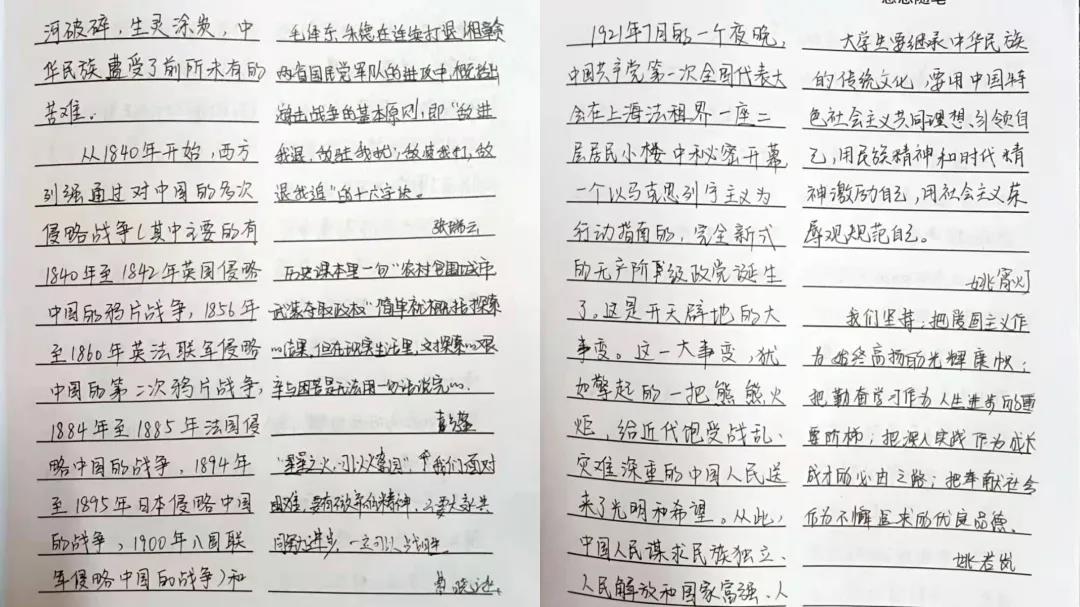 河破碎，生灵涂炭，中
华民族遭受了前所未有的
苦难。
从1840年开始，西方
列强通过对中国的多次
侵略战争（其中主要的有
1840年至1842年英国侵略
中国的鸦片战争，1856年
至1860年英法联军侵略
中国的第二次鸦片战争，
1884年至1885年法国侵
略中国的战争，1894年
至1895年日本侵略中国
的战争，1900年八国联
军侵略中国的战争）和
毛泽东、朱德在连续打退湘赣
两省国民党军队的进攻中，概括出
游击战争的基本原则，即“敌进
我退，敌驻我扰，敌疲我打，敌
退我追”的十六字诀。
张瑞云
历史课本里一句“农村包围城市
武装夺取政权”简单就概括探索
的结果，但在现实生活里，这探索的艰
辛与困苦是无法用一句话说完的。
“星星之火，可以燎原”，我们面对
困难，要有破釜的精神，只要大家共
同努力进步，一定可以
1921年7月的一个夜晚，
中国共产党第一次全国代表大
会在上海法租界一座二
层居民小楼中秘密开幕
一个以马克思列宁主义为
行动指南的，完全新式
的无产阶级政党诞生
了。这是开天辟地的大
事变。这一大事变，犹
如擎起的一把熊熊火
炬，给近代饱受战乱、
灾难深重的中国人民送
来了光明和希望。从此，
中国人民谋求民族独立、
人民解放和国家富强、人
大学生要继承中华民族
的传统文化，要用中国特
色社会主义共同理想、引领自
己，用民族精神和时代精
神激励自己，用社会主义荣
辱观规范自己。
我们坚持：把爱国主义作
为始终高扬的光辉旗帜；
把勤奋学习作为人生进步的重
要阶梯；把深入实践作为成长
成才的必由之路；把奉献社会
作为不懈追求的优良品德。
姚若岚